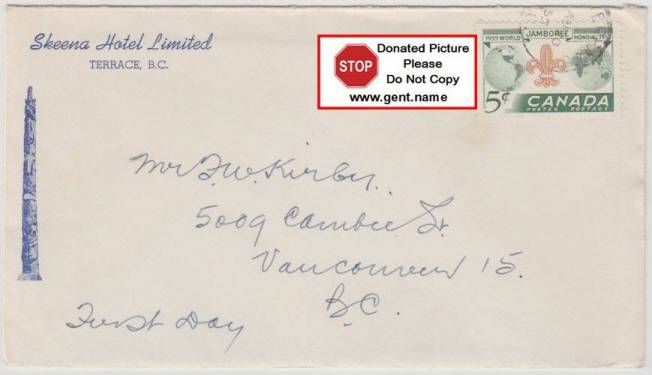 Skeena Hotel Limited
TERRACE, B.C.
STOP
Donated Picture
Please
Do Not Copy
www.gent.name
1955 WORLD JAMBOREE MONDIAL
5¢ CANADA
POSTES POSTAGE
Mr F. W. Kirby.
5009 Cambie St.
Vancouver 15.
B.C.
First Day